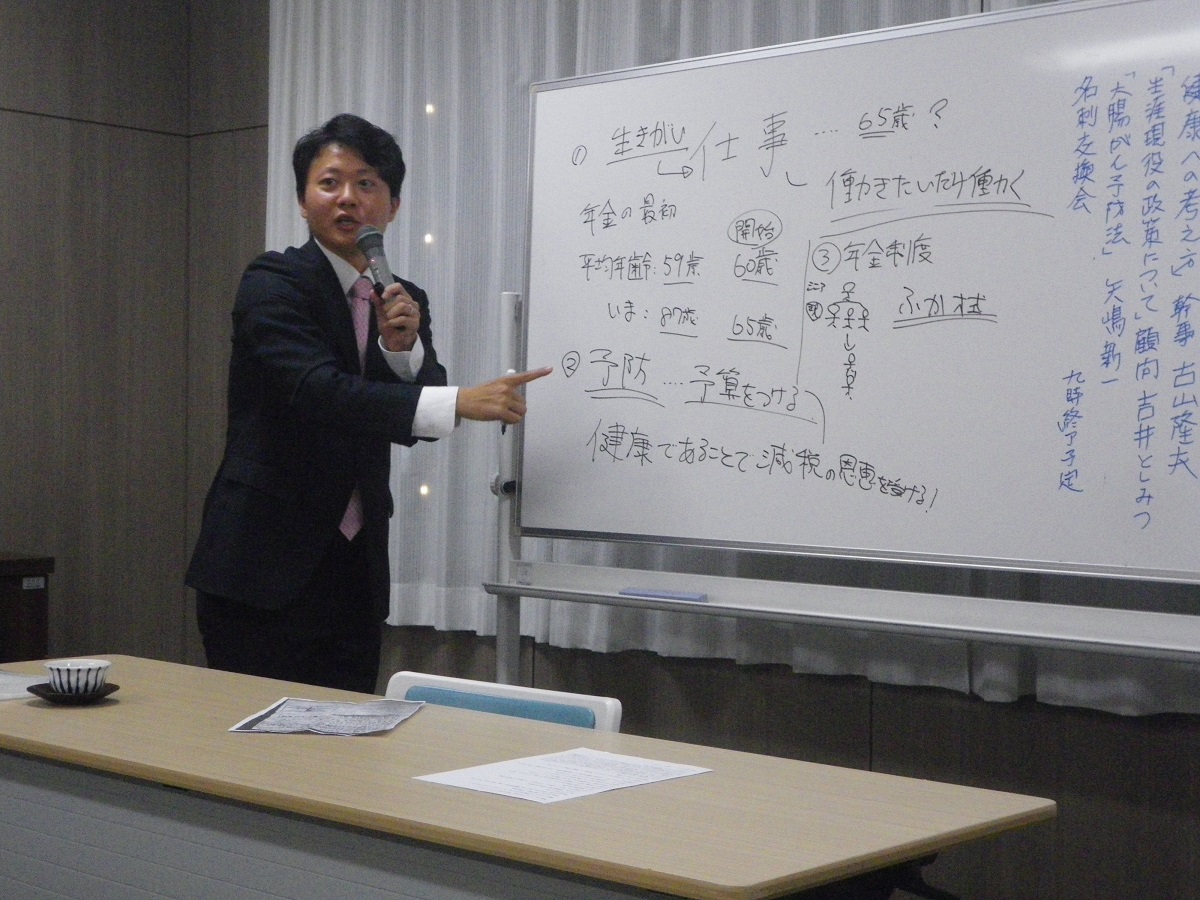 ① 生きがい
仕事 … 65歳?
働きたいだけ働く
年金の最初
開始
平均年齢:59歳 60歳
いま:87歳 65歳
② 予防 … 予算をつける
健康であることで減税の恩恵を受ける!
③ 年金制度
シニア
ふか拡
健康への考え方」 幹事 古山隆夫
「生涯現役の政策について」顧問 吉井としみつ
「大腸がん予防法」 矢嶋新一
名刺交換会
九時終了予定